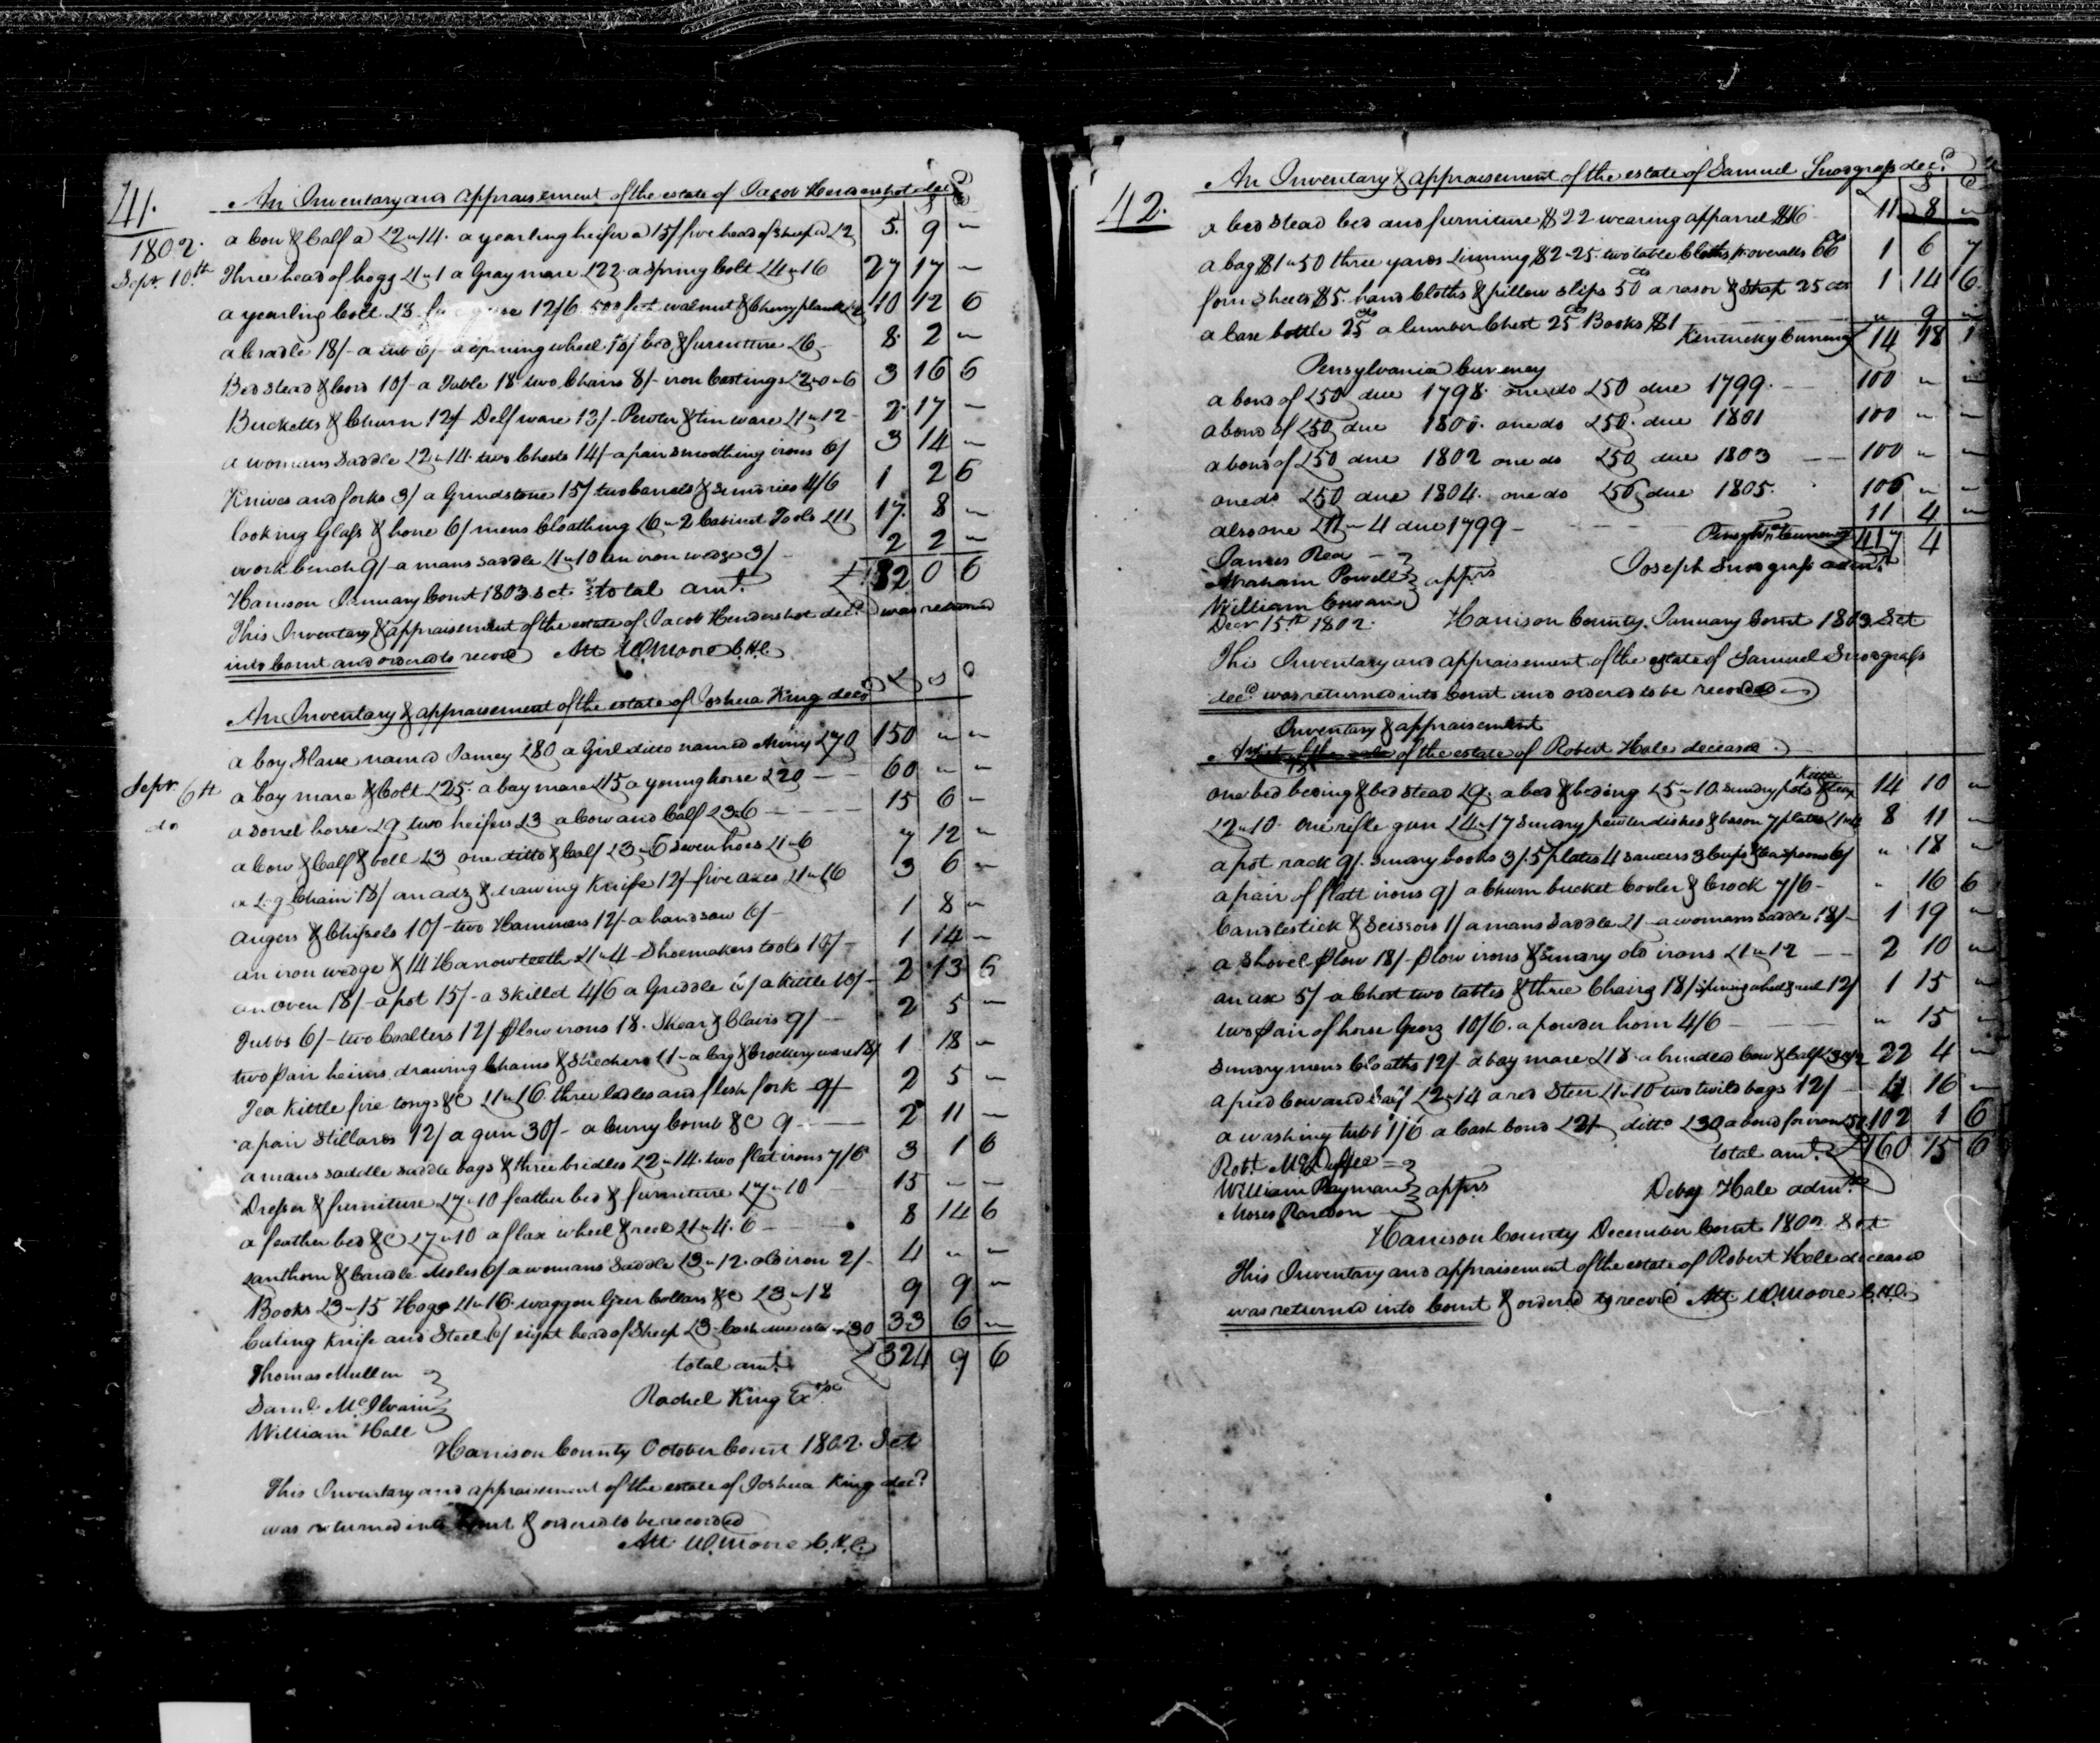 41.
An Inventory and Appraisement of the estate of Jacob Hendershot decd
£ S D
1802.
a Cow & Calf a £2〃14. a yearling heifer a 15/ five head of Sheep a £2 5. 9 〃
Sepr. 10th Three head of hogs £1〃1 a Gray mare £22. a Spring Colt £4〃16 27 17 〃
a yearling Colt £8 12/6. 500 feet walnut & Cherry plank £2 10 12 6
a Cradle 18/- a tub 6/- a Spining wheel 18/ bed & furniture £6 - 8. 2 〃
Bed stead & Cord 10/- a Table 18. two Chairs 8/- iron Castings £2〃0〃6 3 16 6
Bucketts & Churn 12/ Delf ware 13/- Pewter & tin ware £1〃12 - 2. 17 〃
a womans Saddle £2〃14. two Chests 14/- a pair smoothing irons 6/ 3 14 〃
Knives and forks 3/ a Grindstone 15/ two barrels & Sundries 4/6 1 2 6
looking Glass & hone 6/ mens Cloathing £6〃2 Cabinet Tools £11 17. 8 〃
work bench 9/- a mans saddle £1〃10 an iron wedge 3/ - 2 2 〃
Harrison January Court 1803 Sct. total amt. £ 82 0 6
This Inventory & appraisement of the estate of Jacob Hendershot decd was returned
into Court and ordered to record Att W. Moore C.H.C.
An Inventory & appraisement of the estate of Joshua King decd £ S D
a boy Slave named Jamey £80 a Girl ditto named Miny £70 150 〃 〃
Sepr. 6th a bay mare & Colt £25. a bay mare £15 a young horse £20 - - 60 〃 〃
do a Sorrel horse £9 two heifers £3 a Cow and Calf £3〃6 - - - 15 6 〃
a Cow & Calf & bell £3 one ditto & Calf £3〃6 Seven hoes £1〃6 7 12 〃
a Log Chain 18/ an adz & drawing Knife 12/- five axes £1〃16 3 6 〃
augers & Chissels 10/- two Hammers 12/- a handsaw 6/- 1 8 〃
an iron wedge & 14 Harrow teeth £1〃4 - Shoemakers tools 10/- 1 14 〃
an oven 18/- a pot 15/- a Skillet 4/6 a Griddle 6/ a Kittle 10/- 2 13 6
Tubbs 6/- two Coalters 12/ plow irons 18. Shear & Clavis 9/ - 2 5 〃
two pair heims drawing Chains & Strechers £1 - a bag & Crockery ware 18/ 1 18 〃
Tea Kittle fire tongs &C £1〃16. three ladles and flesh fork 9/ 2 5 〃
a pair Stillards 12/ a gun 30/- a Curry Comb &C 9 - - 2 11 〃
a mans saddle saddle bags & three bridles £2〃14. two flat irons 7/6 3 1 6
Dresser & furniture £7〃10 feather bed & furniture £7〃10 15 〃 〃
a feather bed &C £7〃10 a flax wheel & reel £1〃4. 6 - 8 14 6
Lanthorn & Candle Moles 6/ a womans Saddle £3〃12. old iron 2/- 4 〃 〃
Books £3〃15 Hogs £1〃16. waggon Geer Collars &C £3〃18 9 9 〃
Cuting Knife and Steel 6/ eight head of Sheep £3 - Cash due estate £30 33 6 〃
total amt. £ 324 9 6
Thomas Mullen
Saml. McIlvain
William Hall
Rachel King Exx
Harrison County October Court 1802. Sct
This Inventory and appraisement of the estate of Joshua King decd
was returned into Court & ordered to be recorded
Att. W. Moore C.H.C.
42.
An Inventory & appraisement of the estate of Samuel Snodgrass decd
£ S D
a bed stead bed and furniture $22 wearing apparrel $16 - 11 8 〃
a bag $1〃50 three yards Linning $2〃25. two table Cloths pr overalls 66 cts 1 6 7
four Sheets $5. hand Cloths & pillow slips 50 cts a rasor & Strap 25 cts 1 14 6
a Case bottle 25 cts a lumber Chest 25 cts Books $1 〃 9 〃
Kentucky Currency 14 18 1
Pensylvania Currency
a bond of £50 due 1798. one do £50 due 1799. - 100 〃 〃
a bond of £50 due 1800. one do £50. due 1801 100 〃 〃
a bond of £50 due 1802 one do £50 due 1803 - - 100 〃 〃
one do £50 due 1804. one do £50 due 1805. 100 〃 〃
also one £11〃4 due 1799 - 11 4 〃
Pensylva. Currency 411 4
James Rea
Abraham Powell
William Cowan
apprs
Joseph Snodgrass admr.
Decr. 15th 1802.
Harrison County. January Court 1803. Sct
This Inventory and appraisement of the estate of Samuel Snodgrass
decd was returned into Court and ordered to be recorded
Inventory & appraisement
of the estate of Robert Hale deceased.
one bed beding & bed stead £9. a bed & beding £5〃10. sundry pots & 14 10 〃
£2〃10. One rifle gun £4〃17 Sundry pewter dishes & bason 7 plates £1〃4 8 11 〃
a pot rack 9/. sundry books 3/. 5 plates 4 saucers 3 Cups & teaspoons 6/ 〃 18 〃
a pair of flatt irons 9/ a Churn bucket Cooler & Crock 7/6 - 〃 16 6
Candlestick & Scissors 1/ a mans Saddle £1 - a womans saddle 18/- 1 19 〃
a Shovel plow 18/- plow irons & Sundry old irons £1〃12 - - 2 10 〃
an ax 5/- a Chest two tables & three Chairs 18/ Spining wheel & reel 12/ 1 15 〃
two pair of horse Gearz 10/6. a powder horn 4/6 - - - 〃 15 〃
Sundry mens Cloaths 12/- a bay mare £18. a brindled Cow & Calf £3〃12 22 4 〃
a pied Cow and Calf £2〃14 a red Steer £1〃10 two twild bags 12/ - 4 16 〃
a washing tubb 1/6 a Cash bond £21 ditto £30 a bond for iron £51 102 1 6
total amt. £ 160 15 6
Robt. McDuffee
William Rayman
Moses Rardon
apprs
Deby Hale admx
Harrison County December Court 1802. Sct
This Inventory and appraisement of the estate of Robert Hale deceased
was returned into Court & ordered to record Att W. Moore C.H.C.